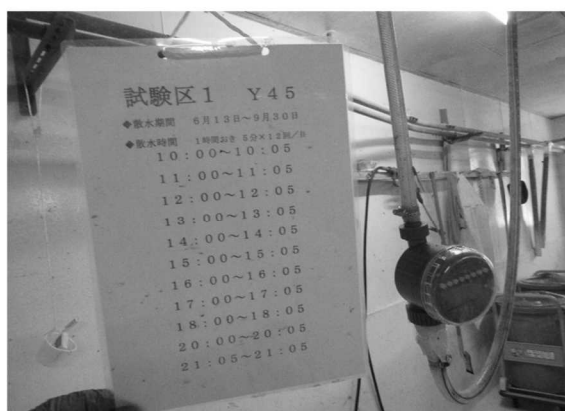 試験区1 Y45
◆散水期間 6月13日～9月30日
◆散水時間 1時間おき 5分×12回／日
10:00～10:05
11:00～11:05
12:00～12:05
13:00～13:05
14:00～14:05
15:00～15:05
16:00～16:05
17:00～17:05
18:00～18:05
20:00～20:05
21:05～21:05